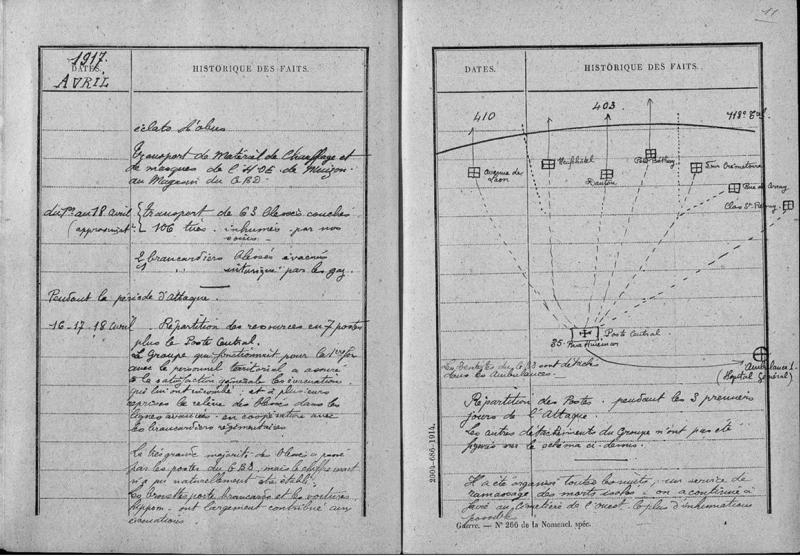 1917.
DATES.
AVRIL
HISTORIQUE DES FAITS.
éclats d'obus
Transport de Matériel de Chauffage et
de masques de l'HOE de Muizon
au Magasin du GBD
du 1er au 18 avril
transport de 63 blessés couchés
(approximat
106 tués. inhumés par nos
soins.
brancardiers blessés évacués
" intoxiqué par les gaz.
Pendant la période d'attaque.
16-17-18 avril
Répartition des ressources en 7 postes
plus le Poste Central.
Le Groupe qui fonctionnait pour la 1re fois
avec le personnel territorial a assuré
à la satisfaction générale les évacuations
qui lui ont incombé, et à plusieurs
reprises la relève des blessés dans les
lignes avancées en coopération avec
les brancardiers régimentaires
La très grande majorité des blessés a passé
par les postes du GBD, mais le chiffre
n'a pu naturellement être établi.
Les brouettes porte brancards et les voitures
hippom. ont largement contribué aux
évacuations.
11
DATES.
HISTORIQUE DES FAITS.
410
403
118e Tal
Avenue de
Laon
Neufchâtel
Ruatou
Petit Bétheny
Four Crématoire
Rue de Cernay
Clos St Remy
Poste Central
85.
Ambulance 1.
(Hôpital Général)
du GBD sont détach
dans les Ambulances.
Répartition des Postes pendant les 3 premiers
jours de l'Attaque.
Les autres détachements du Groupe n'ont pas été
figurés sur le schéma ci-dessus.
Il a été organisé toutes les nuits, un service de
ramassage des morts isolés; on a continué à
faire au Cimetière de l'Ouest le plus d'inhumations
possible
2901-686-1914.
Guerre. — N° 266 de la Nomencl. spéc.